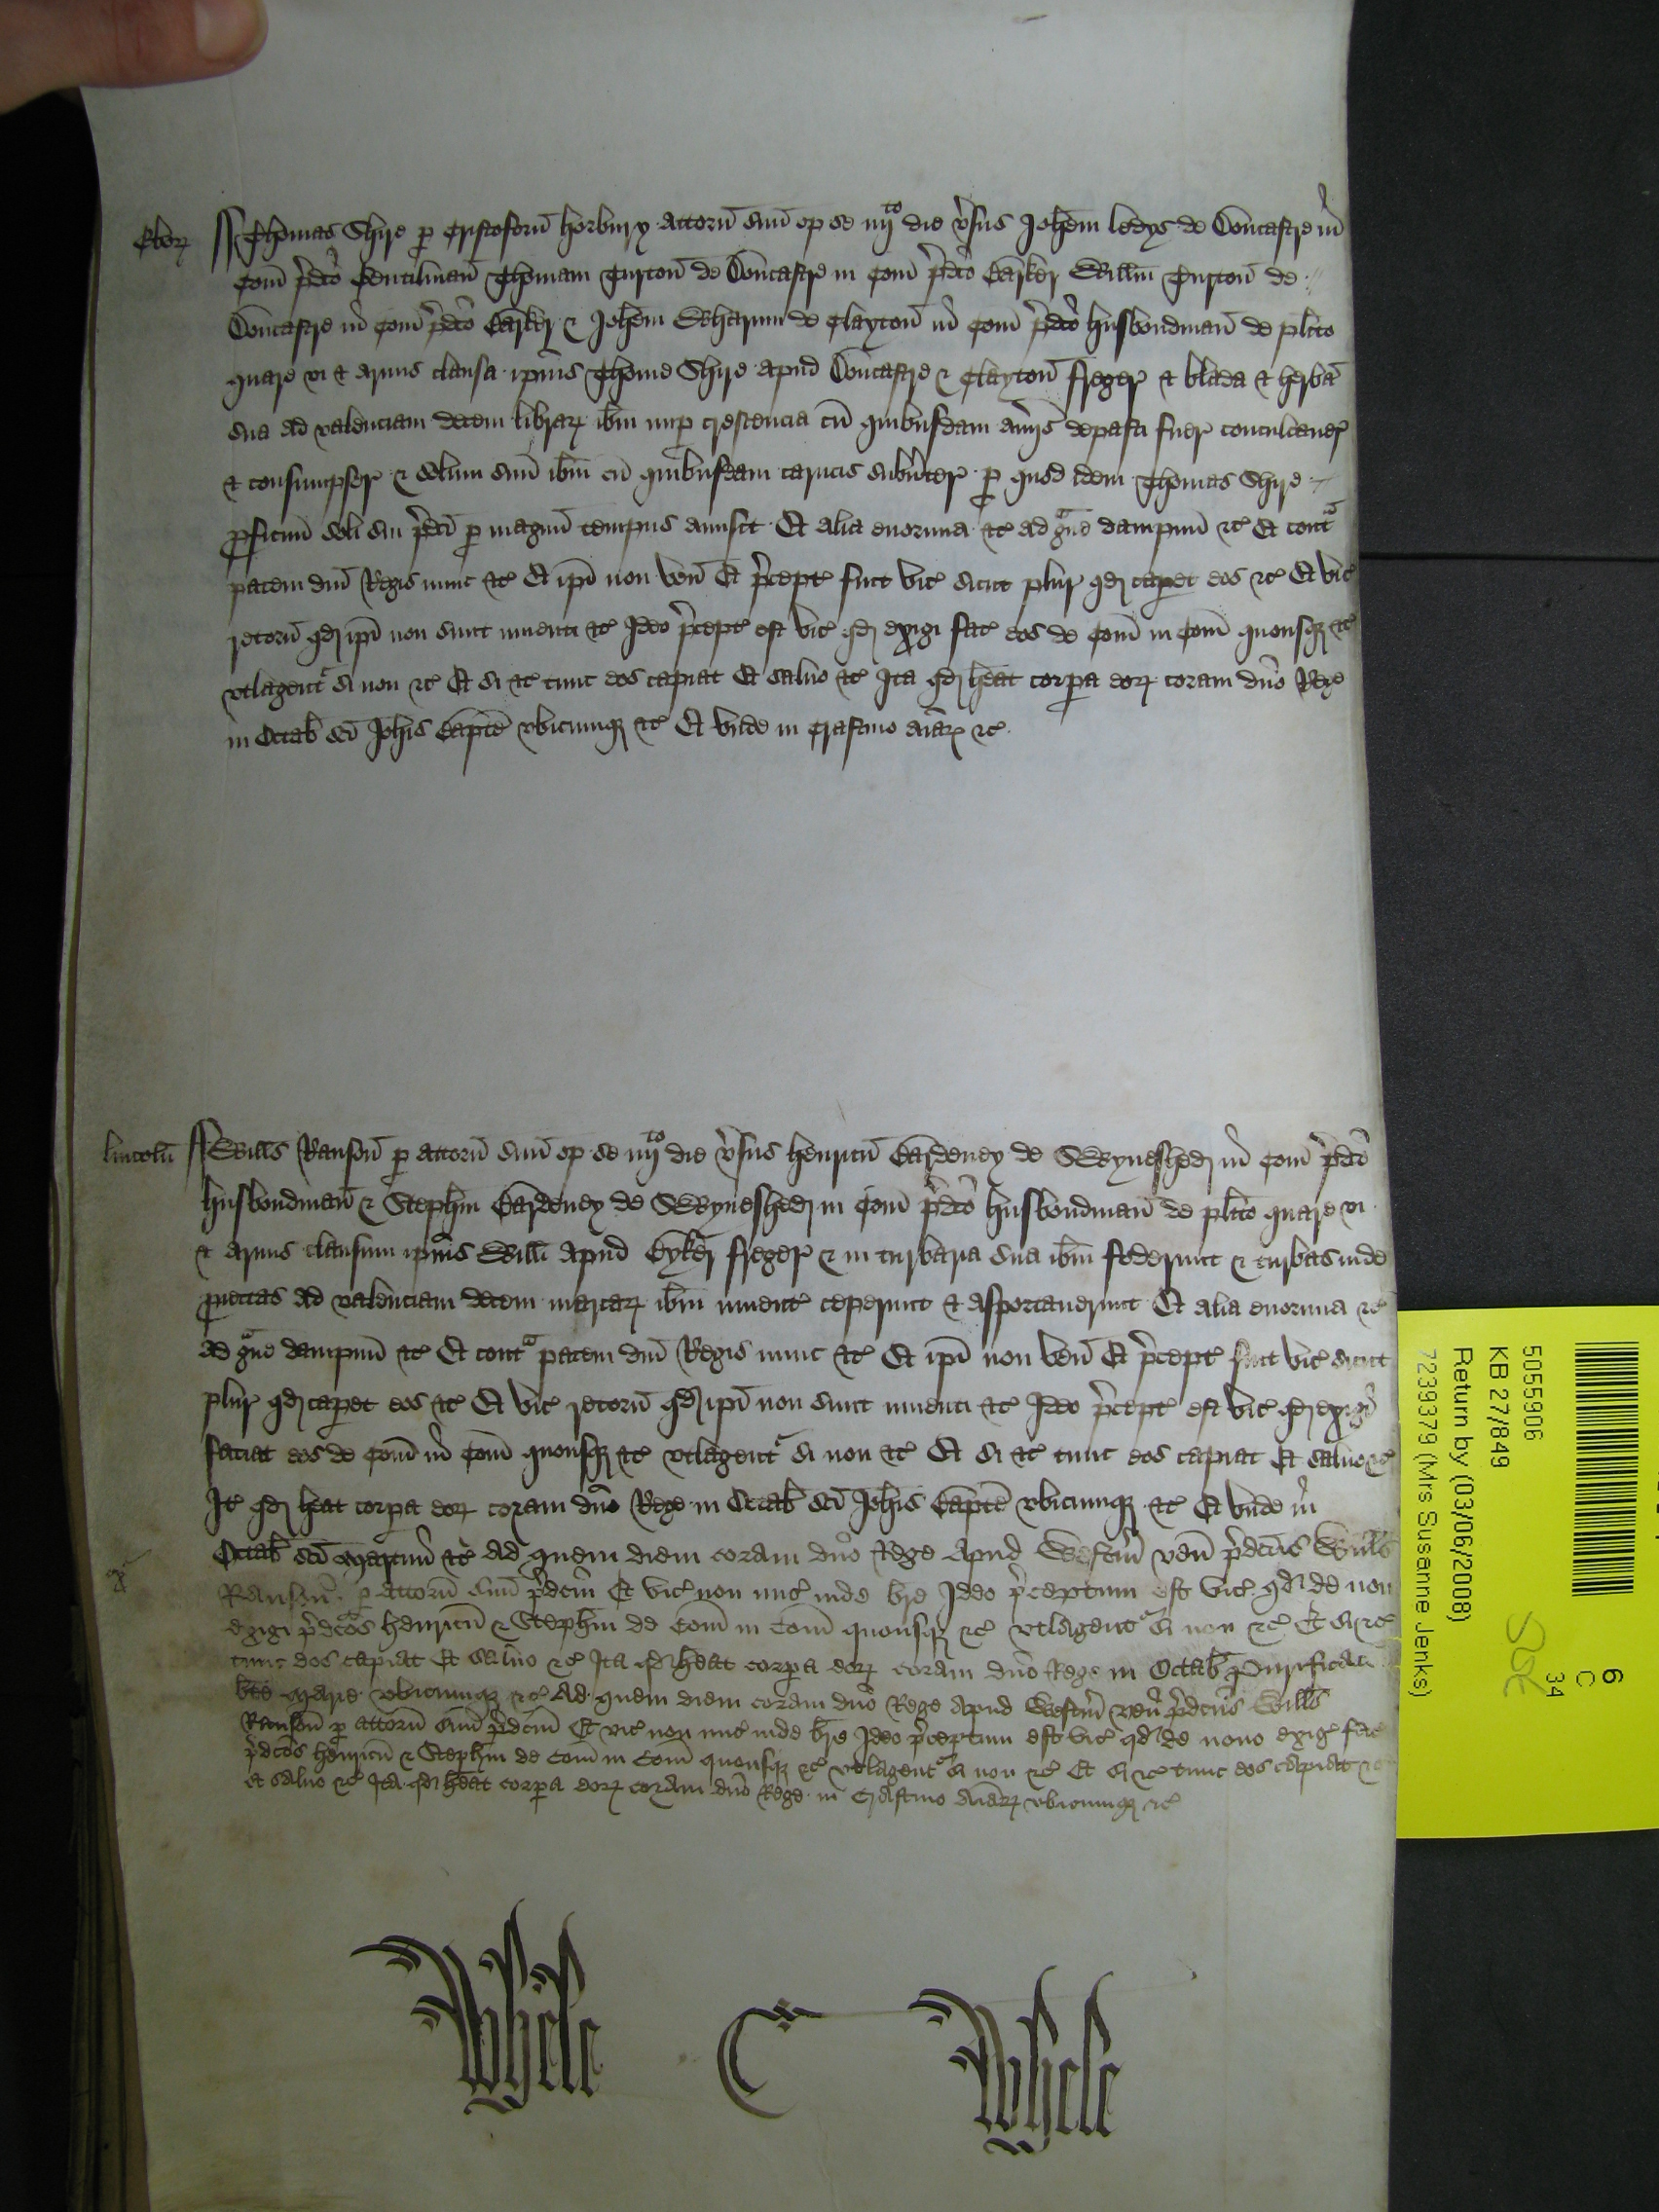 Ebor̃
Thomas Shire p Cristoforũ Horbury attorñ suũ op se iiijto die v̾sus Joh̃em Ledys de Doncastre in
Com̃ p̾dc̃o Gentilmañ Thomam Turtoñ de Doncastre in Com̃ p̾dc̃o Barker Will̃m Turtoñ de
Doncastre in Com̃ p̾dc̃o Barker & Joh̃em Wharum de Claytoñ in Com̃ p̾dc̃o husbondmañ de pl̃ito
quare vi & armis clausa ip̃ius Thome Shire apud Doncastre & Claytoñ freger̃ & blada & herbã
sua ad valenciam decem librar̃ ib̃m nup crescencia cũ quibusdam aũijs depasti fuer̃ conculcauer̃
& consumpser̃ & solum suũ ib̃m cũ quibusdam carucis subũter̃ p quod idem Thomas Shire
proficuũ soli sui p̾dc̃i p magnũ tempus amisit Et alia enormia &c̃ ad gᵃue dampnũ &c̃ Et contᵃ
pacem dñi Regis nunc &c̃ Et ip̃i non veñ Et p̾cept̃ fuit vic̃ sicut plur̃ qd̃ caperet eos &c̃ Et vic̃
retorñ qd̃ ip̃i non sunt inuenti &c̃ Ideo p̾cept̃ est vic̃ qd̃ exigi fac̃ eos de Com̃ in Com̃ quousq̃ &c̃
vtlagent̃ si non &c̃ Et si &c̃ tunc eos capiat Et saluo &c̃ Ita qd̃ h̃eat corpora eor̃ coram dño Rege
in Octab̃ sc̃i Joh̃is Bap̃te vbicumq̃ &c̃ Et vnde in Crastino Aĩar̃ &c̃
Lincolñ
Will̃s Ransoñ p attorñ suũ op se iiijto die v̾sus Henricũ Bardeney de Swyneshed in Com̃ p̾dc̃o
husbondmañ & Steph̃m Bardeney de Swyneshed in Com̃ p̾dc̃o husbondmañ de pl̃ito quare vi
& armis clausum ip̃ius Will̃i apud Byker freger̃ & in turbaria sua ib̃m foderunt & turbas inde
proiectas ad valenciam decem marcar̃ ib̃m inuent̃ ceperunt & asportauerunt Et alia enormia &c̃
ad gᵃue dampnũ &c̃ Et contᵃ pacem dñi Regis nunc &c̃ Et ip̃i non veñ Et p̾cept̃ fuit vic̃ sicut
plur̃ qd̃ caperet eos &c̃ Et vic̃ retorñ qd̃ ip̃i non sunt inuenti &c̃ Ideo p̾cept̃ est vic̃ qd̃ exigi
faciat eos de Com̃ in Com̃ quousq̃ &c̃ vtlagent̃ si non &c̃ Et si &c̃ tunc eos capiat Et saluo &c̃
It̃ qd̃ h̃eat corpora eor̃ coram dño Rege in Octab̃ sc̃i Joh̃is Bap̃te vbicumq̃ &c̃ Et vnde in
Octab̃ sc̃i Martini &c̃ Ad quem diem coram dño Rege apud Westm̃ veñ p̾dc̃us Will̃s
Ransoñ p attorñ suũ p̾dc̃m Et vic̃ non mis̃ inde br̃e Ideo p̾ceptum est vic̃ qd̃ de nouo
exigi p̾dc̃os Henricũ & Steph̃m de Com̃ in Com̃ quousq̃ &c̃ vtlagent̃ si non &c̃ Et si &c̃
tunc eos capiat Et saluo &c̃ Ita qd̃ h̃eat corpora eor̃ coram dño Rege in Octab̃ Purificac̃
b̃te Marie vbicumq̃ &c̃ Ad quem diem coram dño Rege apud Westm̃ veñ p̾dc̃us Will̃s
Ransoñ p attorñ suũ p̾dc̃m Et vic̃ non mis̃ inde br̃e Ideo p̾ceptum est vic̃ qd̃ de nouo exigi fac̃
p̾dc̃os Henricũ & Steph̃m de Com̃ in Com̃ quousq̃ &c̃ vtlagent̃ si non &c̃ Et si &c̃ tunc eos capiat
Et saluo &c̃ Ita qd̃ h̃eat corpora eor̃ coram dño Rege in Crastino Aĩar̃ vbicumq̃ &c̃
Whele C Whele
5055906
KB 27/849
Return by (03/06/2008)
7239379 (Mrs Susanne Jenks)
6
C
34